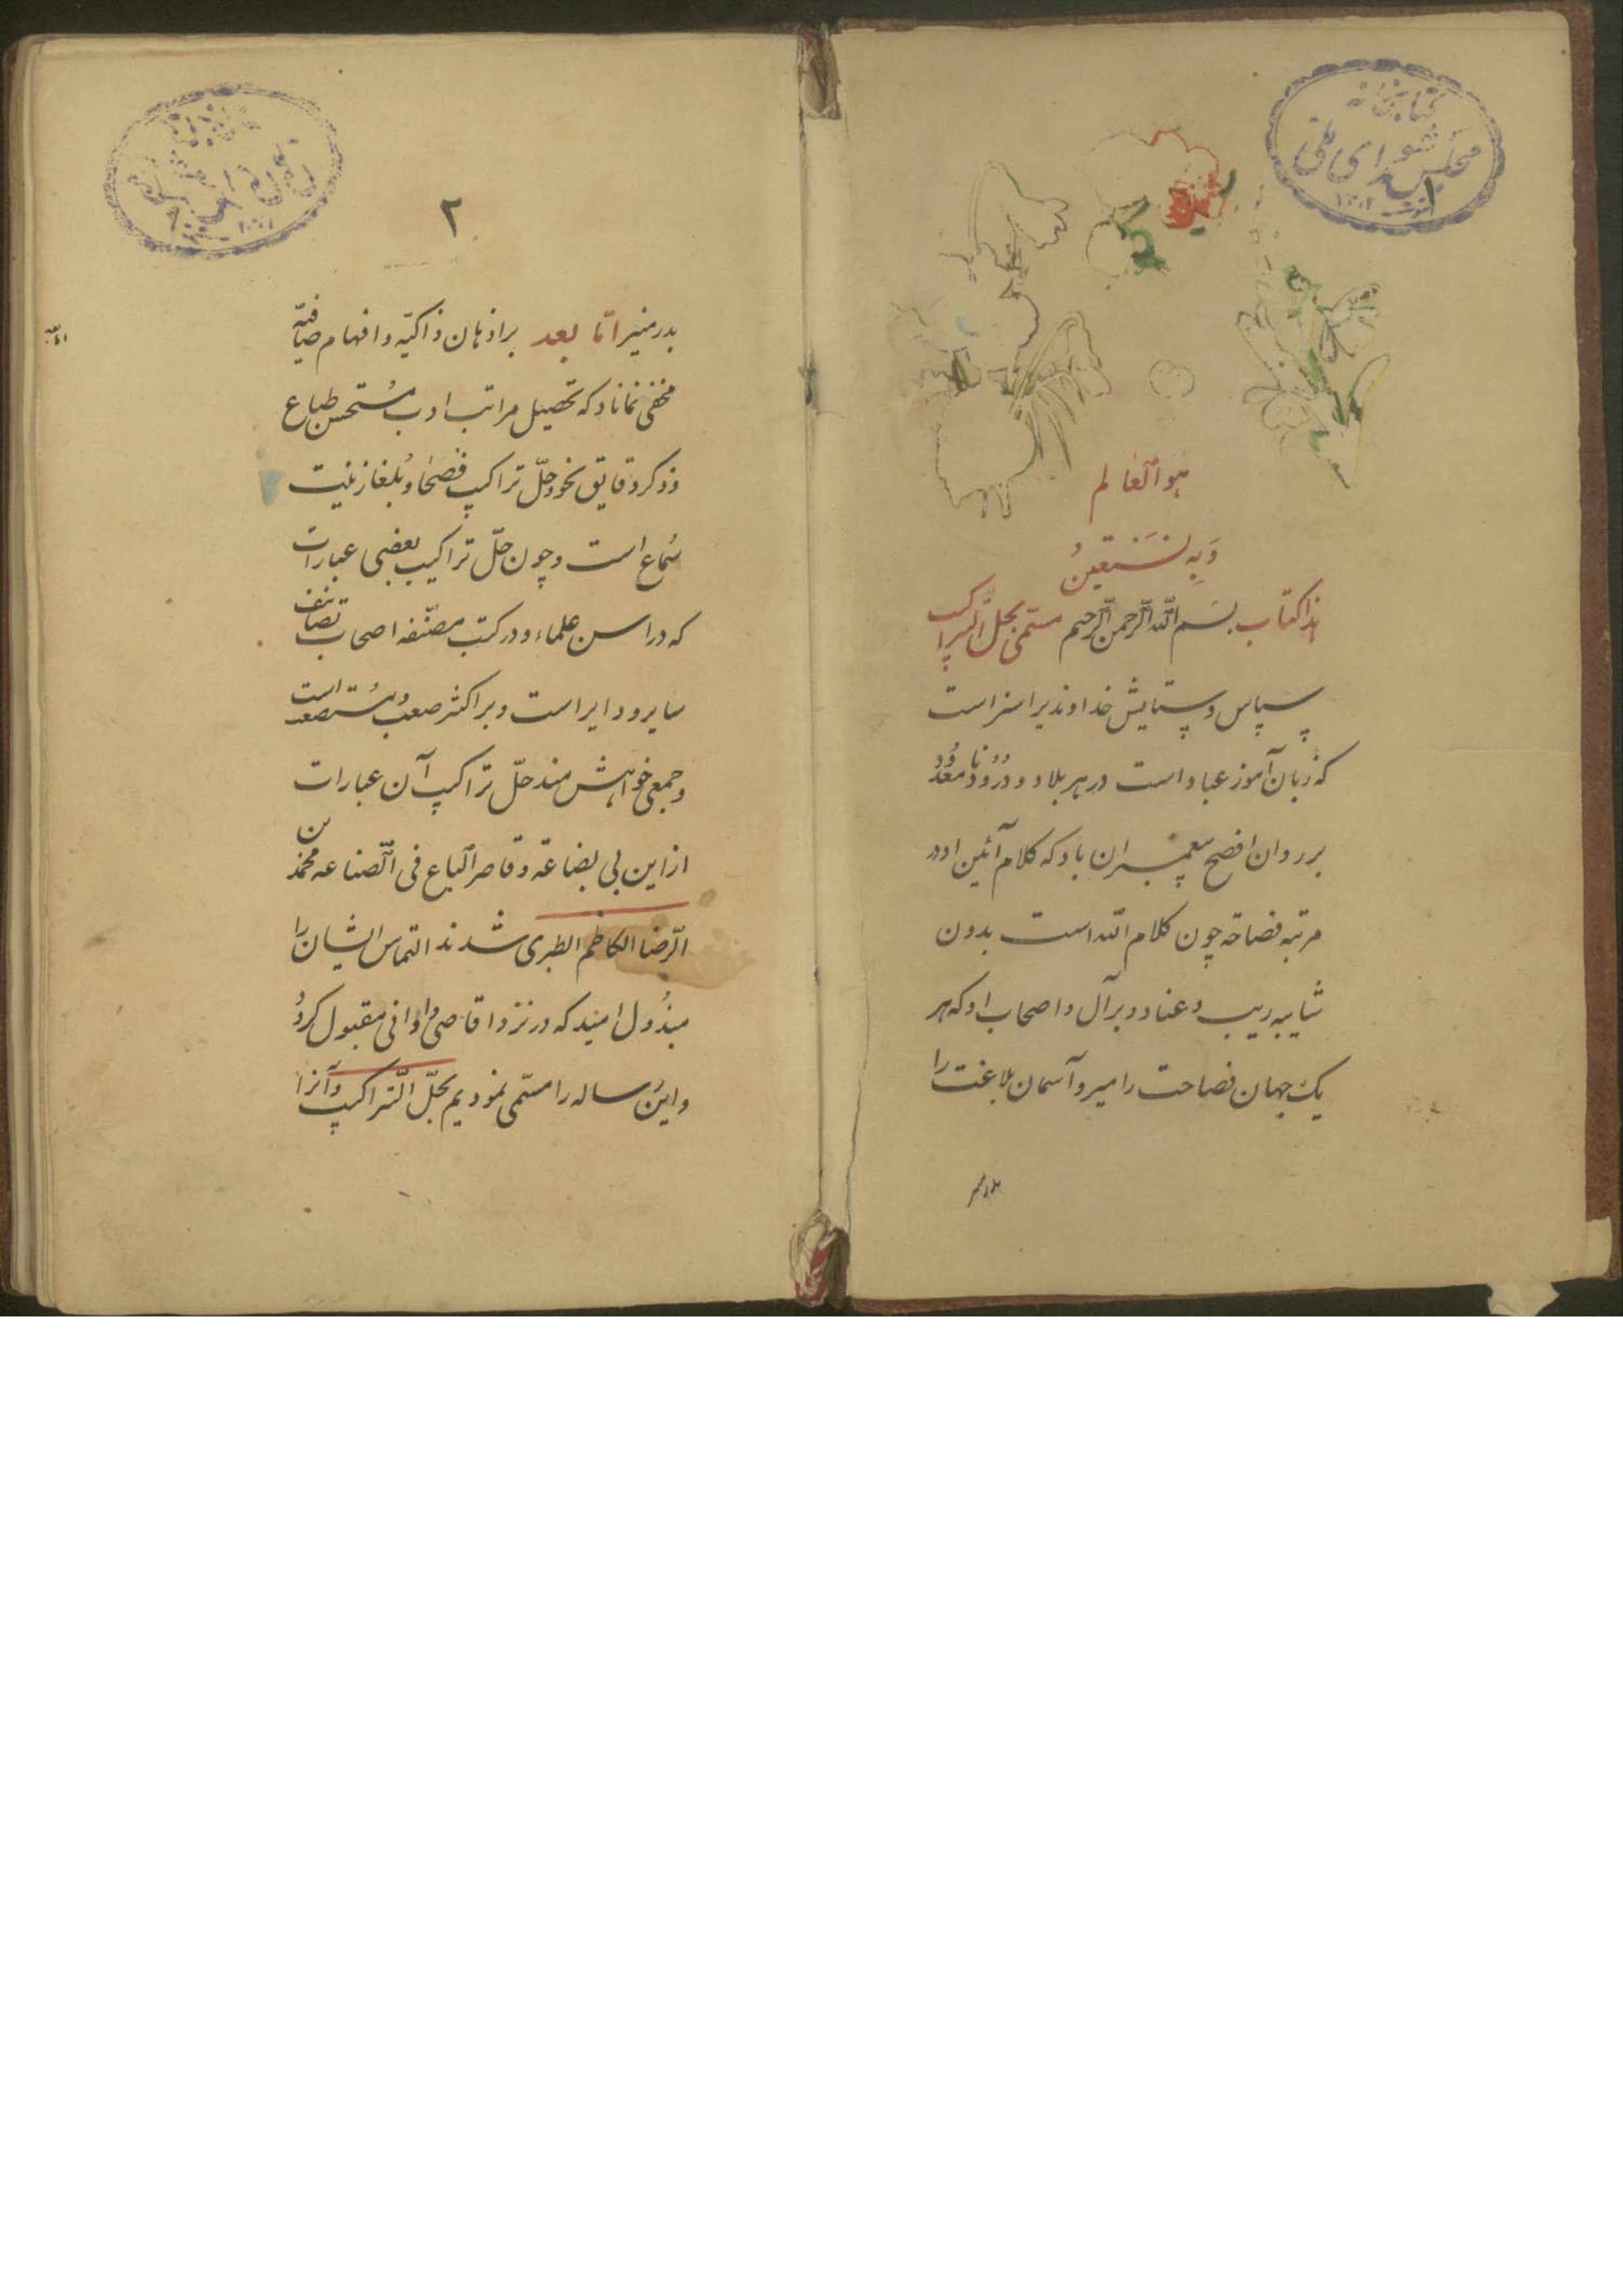 کتابخانه
مجلس شورای ملی
۱
هو العالم
وَبِهِ نَسْتَعینُ
هذا کتاب بسم الله الرحمن الرحیم مسمّی بحلّ التراکیب
سپاس و ستایش خداوندیرا سزاست
که زبان آموز عباد است در هر بلاد و درود نامعدود
بر روان افصح پیغمبران باد که کلام آئین او در
مرتبه فصاحة چون کلام الله است بدون
شایبه ریب و عناد و بر آل و اصحاب او که هر
یک جهان فصاحت را میر و آسمان بلاغت را
بدر منیر
۲
بدر منیر امّا بعد بر اذهان ذاکیّه و افهام صافیّه
مخفی نماناد که تحصیل مراتب ادب مُستحسن طباع
و ذکر دقایق نحو و حلّ تراکیب فُصَحا و بُلغا زینت
سُماع است و چون حلّ تراکیب بعضی عبارات
که در السن علماء و در کتب مصنّفه اصحاب تصانیف
سایر و دایر است و بر اکثر صعب و مُستصعب است
و جمعی خواهش مند حلّ تراکیب آن عبارات
از این بی بضاعة و قاصر الباع فی الصّناعه محمد بن
الرّضا الکاظم الطبری شدند التماس ایشان را
مبذُول امید که در نزد اقاصی و ادانی مقبول گردُ
و این رساله را مسمّی نمودیم بحلّ التّراکیب و آنرا